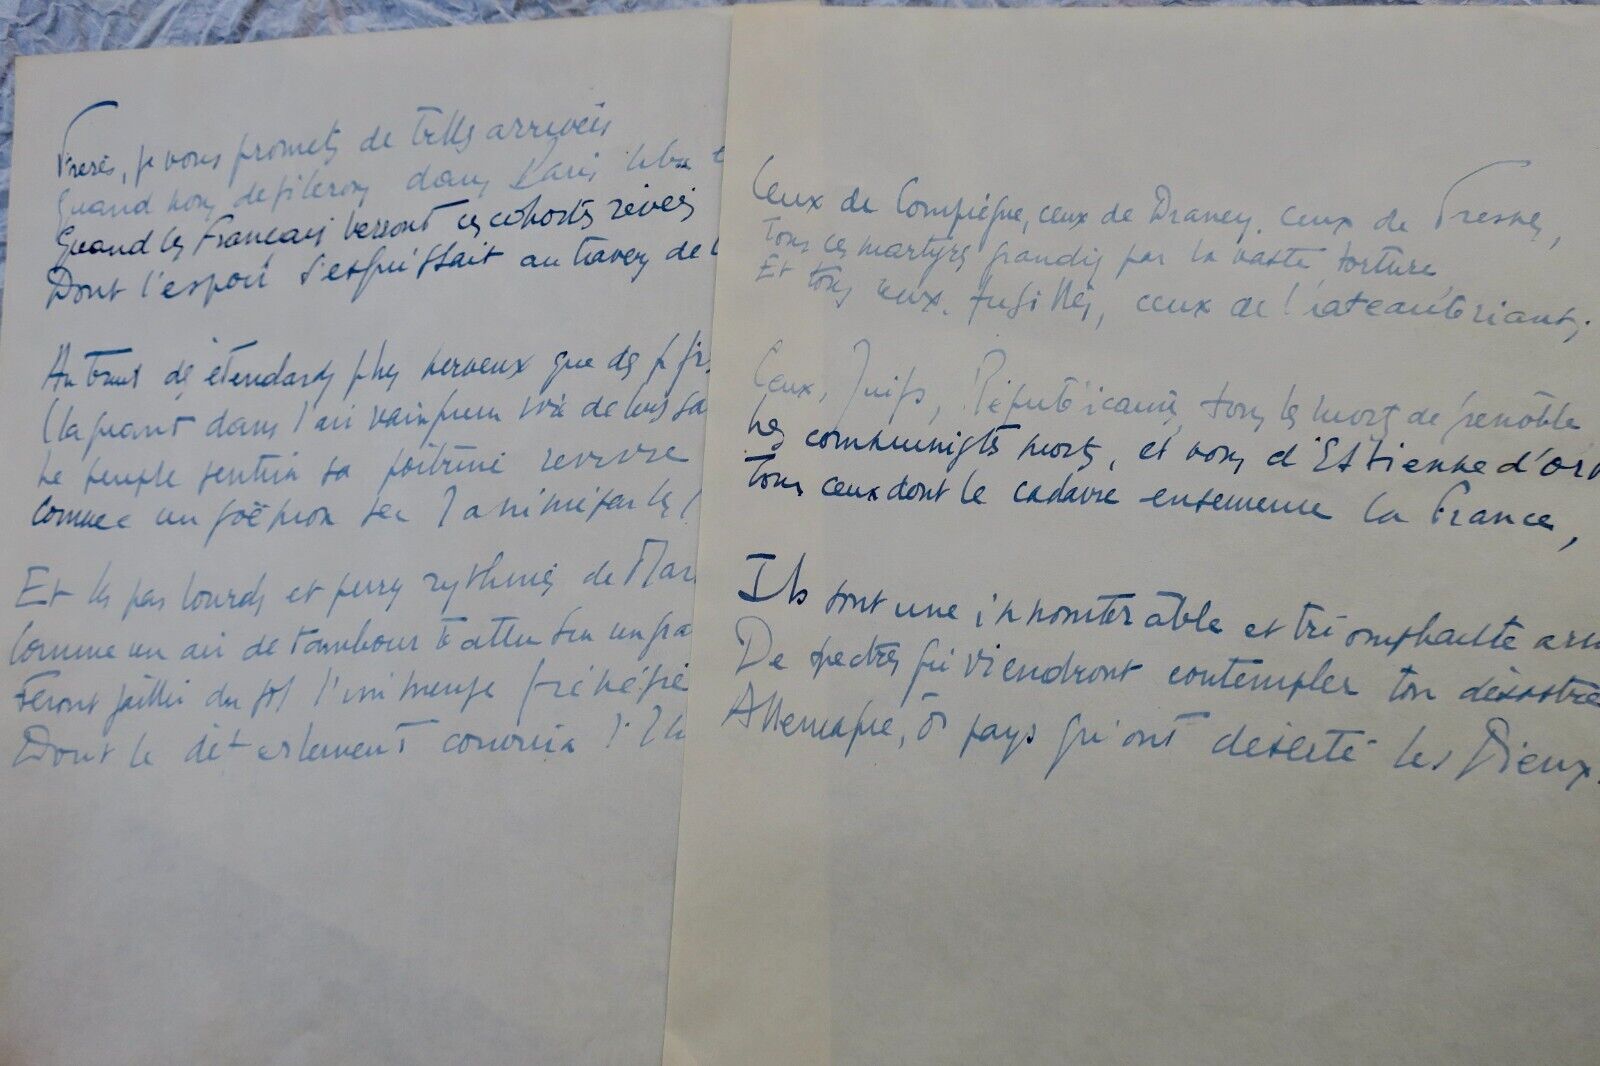 Freres, je vous promets de telles arrivées
Quand nous defilerons dans Paris
Quand les Français verront ces cohortes revées
Dont l'espoir s'esquissait au travers de
Au bruit des étendards plus nerveux que des
Claquant dans l'air
Le peuple sentira sa poitrine revivre
Comme un goëmon sec
Et les pas lourds et purs rythmés de
Comme un air de tambour
Feront jaillir du sol l'immense frénésie
Dont le déferlement couvrira
Ceux de Compiègne, ceux de Drancy, ceux de Fresnes,
Tous ces martyrs grandis par la vaste torture
Et tous ceux, fusillés, ceux de Chateaubriant;
Ceux, Juifs, Républicains, tous les morts de Grenoble
Les communistes morts, et vous d'Estienne d'
Tous ceux dont le cadavre ensemence la France,
Ils sont une innombrable et triomphante
De spectres qui viendront contempler ton désastre
Allemagne, ô pays qu'ont déserté les Dieux.